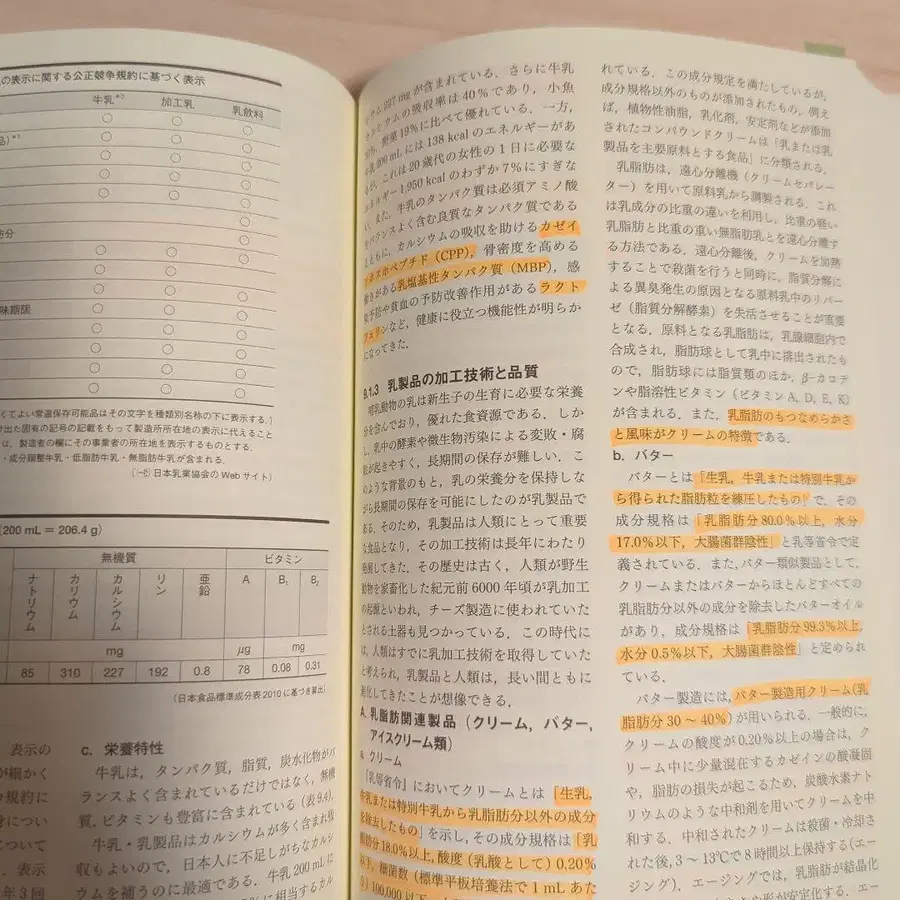 の表示に関する公正競争規約に基づく表示
牛乳*² 加工乳 乳飲料
品)*¹
○ ○ ○
○ ○ ○
○ ○ ○
○ ○ ○
○ ○ ○
肪分
○ ○ ○
○ ○ ○
○ ○ ○
味期限 ○ ○ ○
○ ○ ○
○ ○ ○
○ ○ ○
くてよい常温保存可能品はその文字を種類別名称の下に表示する.)
け出た固有の記号の記載をもって製造所所在地の表示に代えること
は, 製造者の欄にその事業者の所在地を表示するものとする.
・成分調整牛乳・低脂肪牛乳・無脂肪牛乳が含まれる.
日本乳業協会のWebサイト)
(200 mL = 206.4 g)
無機質 ビタミン
ナトリウム カリウム カルシウム リン 亜鉛 A B₁ B₂
mg μg mg
85 310 227 192 0.8 78 0.08 0.31
(日本食品標準成分表2010に基づき算出)
表示の
が細かく
規約に
につい
について
表示
年3回
c. 栄養特性
牛乳は, タンパク質, 脂質, 炭水化物がバ
ランスよく含まれているだけではなく, 無機
質, ビタミンも豊富に含まれている (表9.4).
牛乳・乳製品はカルシウムが多く含まれ吸
収もよいので, 日本人に不足しがちなカルシ
ウムを補うのに最適である. 牛乳200 mLに
%に相当するカル
227 mgが含まれている. さらに牛乳
カルシウムの吸収率は40%であり, 小魚
野菜19%に比べて優れている. 一方,
牛乳200 mLには138 kcalのエネルギーがあ
るが, これは20歳代の女性の1日に必要な
エネルギー1,950 kcalのわずか7%にすぎな
い. また, 牛乳のタンパク質は必須アミノ酸
をバランスよく含む良質なタンパク質である
とともに, カルシウムの吸収を助けるカゼイ
ンホスホペプチド (CPP), 骨密度を高める
働きがある乳塩基性タンパク質 (MBP), 感
染予防や貧血の予防改善作用があるラクト
フェリンなど, 健康に役立つ機能性が明らか
になってきた.
9.1.3 乳製品の加工技術と品質
哺乳動物の乳は新生子の生育に必要な栄養
分を含んでおり, 優れた食資源である. しか
し, 乳中の酵素や微生物汚染による変敗・腐
敗が起きやすく, 長期間の保存が難しい. こ
のような背景のもと, 乳の栄養分を保持しな
がら長期間の保存を可能にしたのが乳製品で
ある. そのため, 乳製品は人類にとって重要
な食品となり, その加工技術は長年にわたり
発展してきた. その歴史は古く, 人類が野生
動物を家畜化した紀元前6000年頃が乳加工
の起源といわれ, チーズ製造に使われていた
とされる土器も見つかっている. この時代に
は, 人類はすでに乳加工技術を取得していた
と考えられ, 乳製品と人類は, 長い間ともに
進化してきたことが想像できる.
A. 乳脂肪関連製品 (クリーム, バター,
アイスクリーム類)
a. クリーム
「乳等省令」においてクリームとは「生乳,
牛乳または特別牛乳から乳脂肪分以外の成分
を除去したもの」を示し, その成分規格は「乳
脂肪分18.0%以上, 酸度 (乳酸として) 0.20%
以下, 細菌数 (標準平板培養法で1 mLあた
り) 100,000以下
れている. この成分規定を満たしているが,
成分規格以外のものが添加されたもの, 例え
ば, 植物性油脂, 乳化剤, 安定剤などが添加
されたコンパウンドクリームは「乳または乳
製品を主要原料とする食品」に分類される.
乳脂肪は, 遠心分離機 (クリームセパレー
ター) を用いて原料乳から調製される. これ
は乳成分の比重の違いを利用し, 比重の軽い
乳脂肪と比重の重い無脂肪乳とを遠心分離す
る方法である. 遠心分離後, クリームを加熱
することで殺菌を行うと同時に, 脂質分解に
よる異臭発生の原因となる原料乳中のリパー
ゼ (脂質分解酵素) を失活させることが重要
となる. 原料となる乳脂肪は, 乳腺細胞内で
合成され, 脂肪球として乳中に排出されたも
ので, 脂肪球には脂質類のほか, β-カロテ
ンや脂溶性ビタミン (ビタミンA, D, E, K)
が含まれる. また, 乳脂肪のもつなめらかさ
と風味がクリームの特徴である.
b. バター
バターとは「生乳, 牛乳または特別牛乳か
ら得られた脂肪粒を練圧したもの」で, その
成分規格は「乳脂肪分80.0%以上, 水分
17.0%以下, 大腸菌群陰性」と乳等省令で定
義されている. また, バター類似製品として,
クリームまたはバターからほとんどすべての
乳脂肪分以外の成分を除去したバターオイル
があり, 成分規格は「乳脂肪分99.3%以上,
水分0.5%以下, 大腸菌群陰性」と定められ
ている.
バター製造には, バター製造用クリーム (乳
脂肪分30～40%) が用いられる. 一般的に,
クリームの酸度が0.20%以上の場合は, ク
リーム中に少量混在するカゼインの酸凝固
や, 脂肪の損失が起こるため, 炭酸水素ナト
リウムのような中和剤を用いてクリームを中
和する. 中和されたクリームは殺菌・冷却さ
れた後, 3～13℃で8時間以上保持する (エー
ジング). エージングでは, 乳脂肪が結晶化
が安定化する. エー